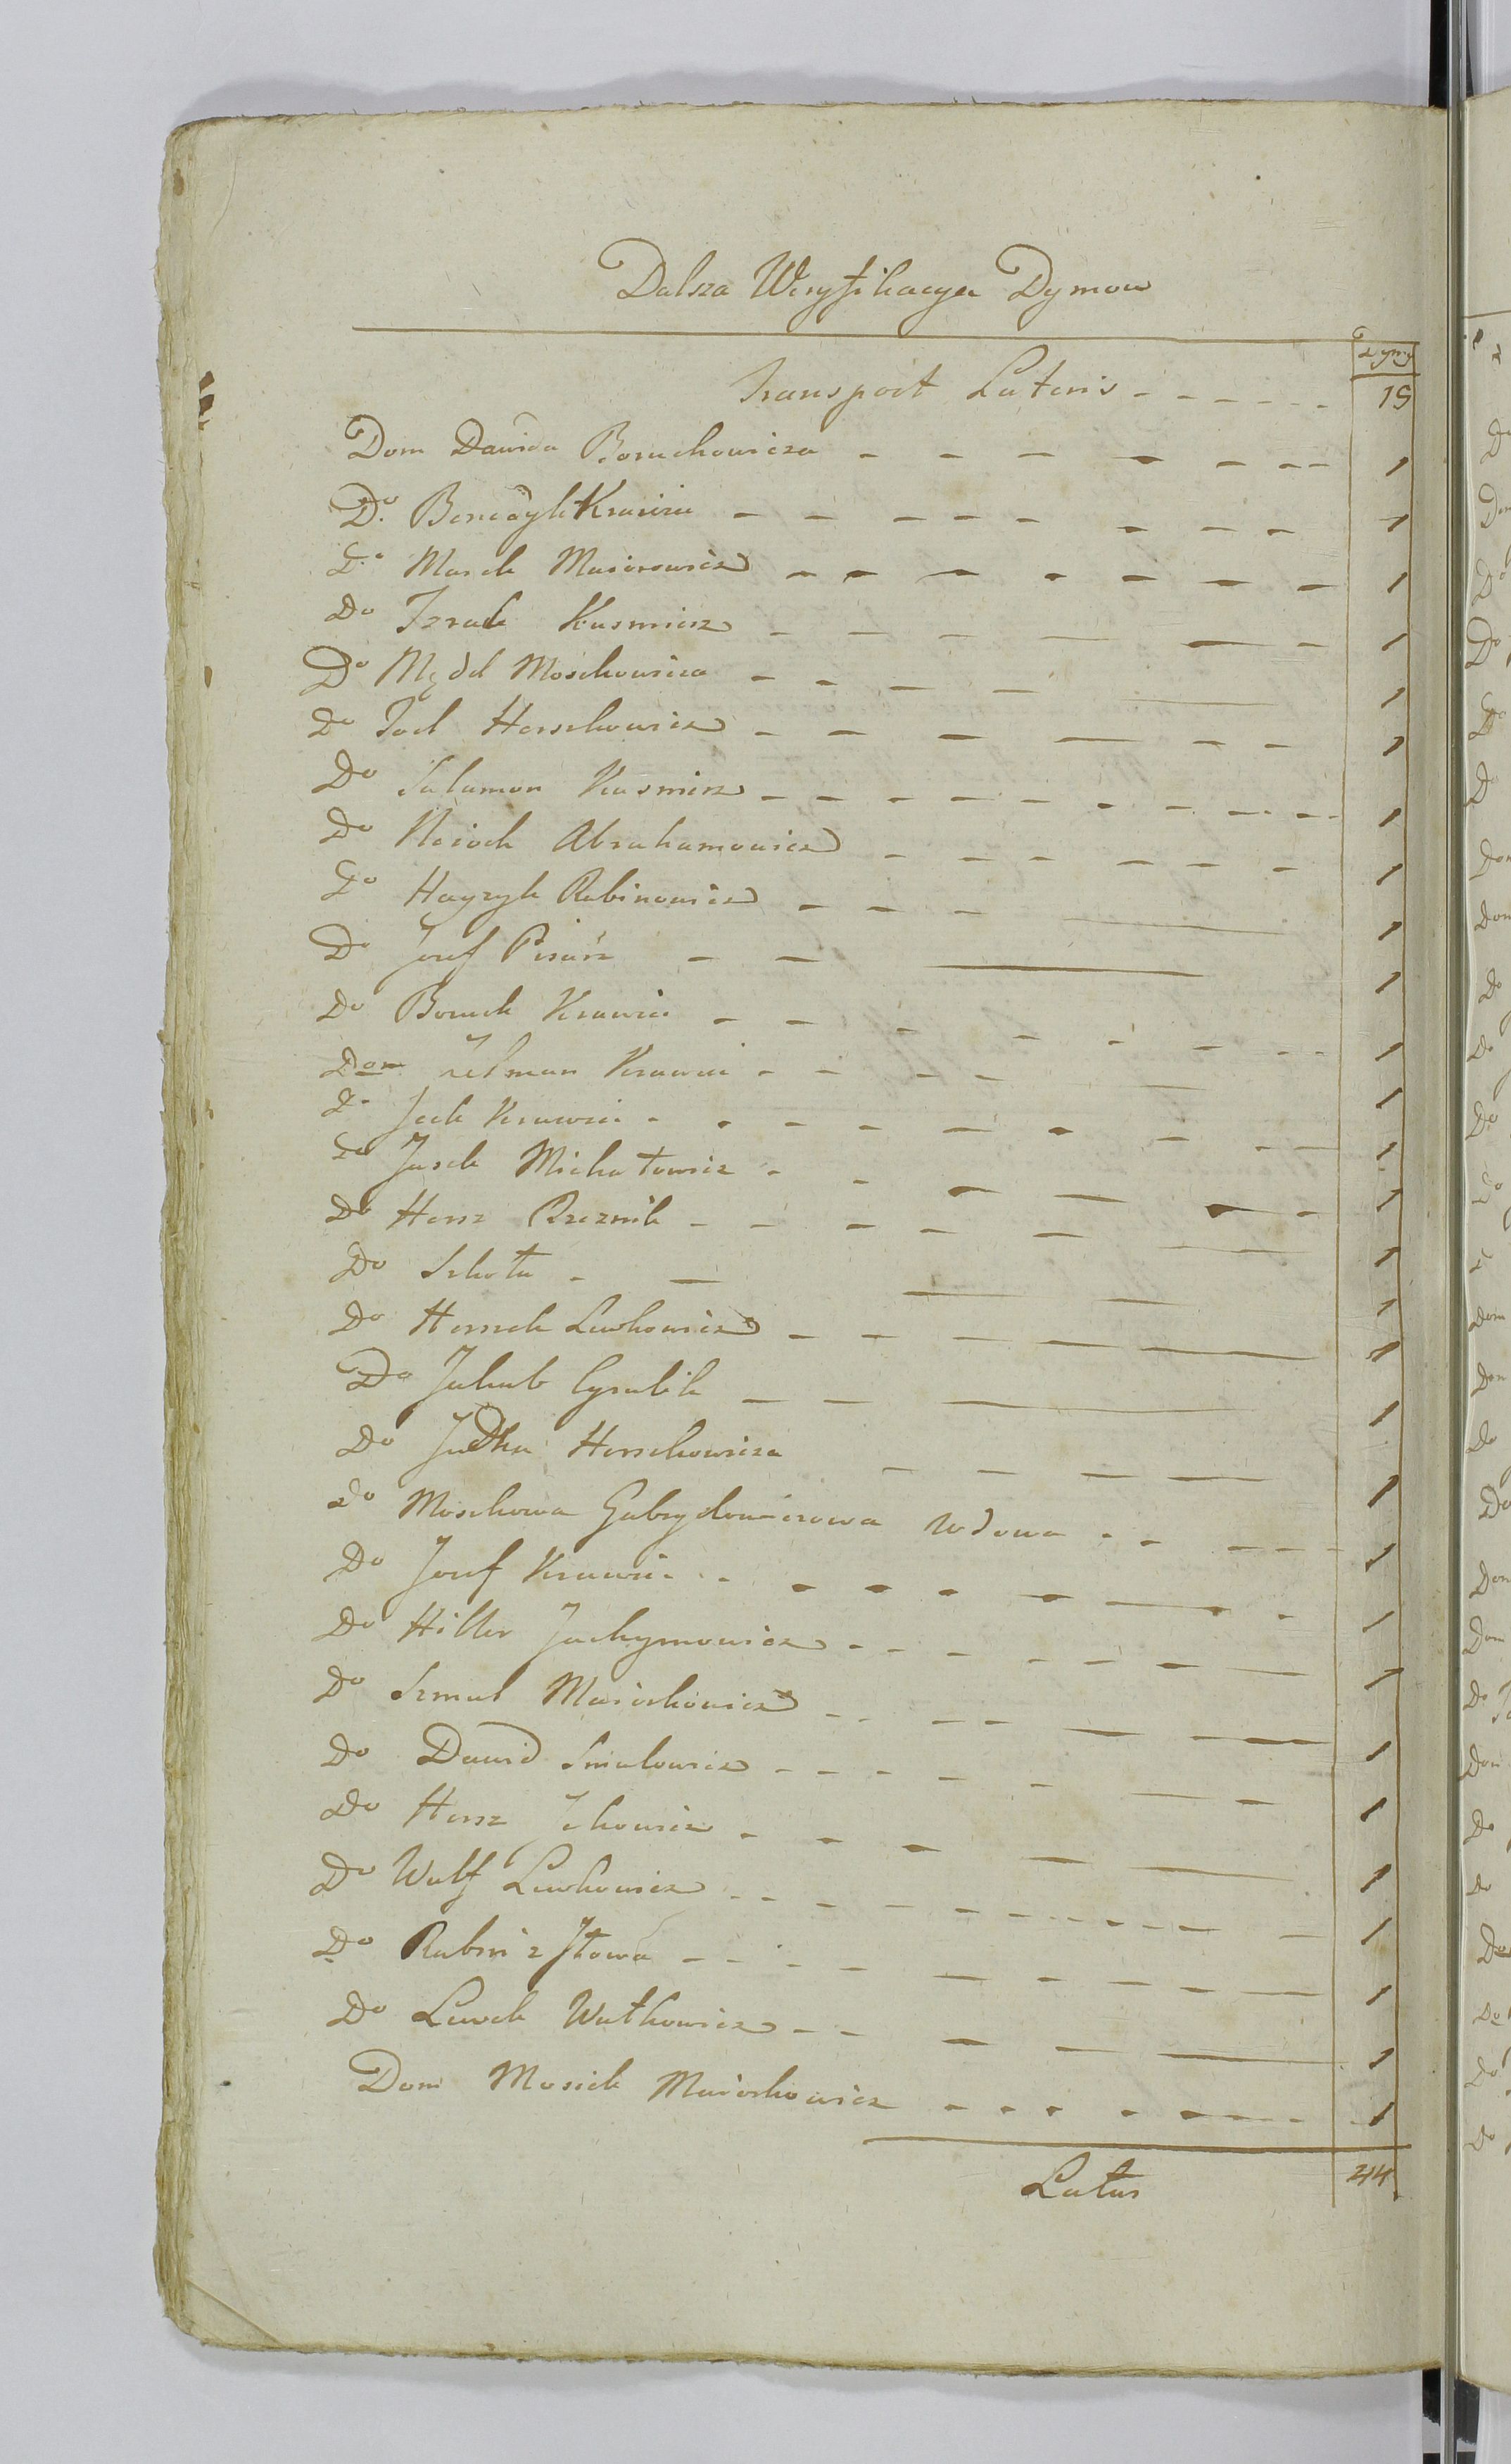 Dalsza Weryfikacya Dymow
Dymy
Transport Lateris - - - - - - 15
Dom Dawida Boruchowicza - - - - - - - 1
Do Benedyk Krawiec - - - - - - - - 1
Do Marek Maiorowicz - - - - - - - 1
Do Izrael Kusmierz - - - - - - 1
Do Mędel Moszkowicza - - - - - 1
Do Joel Herszkowicz - - - - - - 1
Do Salamon Kusmierz - - - - - - - - - 1
Do Abrahamowicz - - - - - - 1
Do Hayzyk Rabinowicz - - - - 1
Do Josef Pisarz - - - 1
Do Boruch Krawiec - - - - - - - - 1
Dom Zelman Krawiec - - - - - 1
Do Jcek Krawiec - - - - - - - - - 1
Do Josek Michałowicz - - - - - - 1
Do Hersz Rzeznik - - - - - - 1
Do Szkoła - - - - 1
Do Herszek Lewkowicz - - - - - 1
Do Jakub Cyrulik - - - 1
Do Judka Herszkowicza - - - - 1
Do Moszkowa Gabrydowiczowa wdowa - - - - - 1
Do Josef Krawiec - - - - - - - - 1
Do Hiller Jachymowicz - - - - - - - 1
Do Szmul Maiorkowicz - - - - - - 1
Do Dawid Smulowicz - - - - - - - 1
Do Hersz Jckowicz - - - - - 1
Do Wulf Lewkowicz - - - - - - - - - - - 1
Do Rabin z Jłowa - - - - - - - - 1
Do Lewek Wulkowicz - - - - - 1
Dom Mosiek Maiorkowicz - - - - - - - - 1
Latus 44